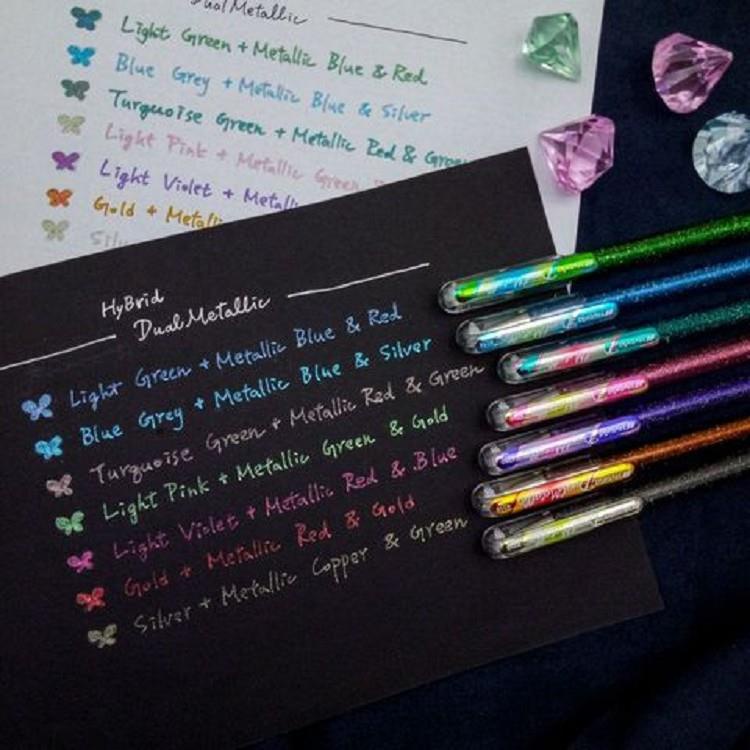 Dual Metallic
Light Green + Metallic Blue & Red
Blue Grey + Metallic Blue & Silver
Turquoise Green + Metallic Red & Green
Light Pink + Metallic Green
Light Violet + Metalli
Gold + Metall
Silv
HyBrid
Dual Metallic
Light Green + Metallic Blue & Red
Blue Grey + Metallic Blue & Silver
Turquoise Green + Metallic Red & Green
Light Pink + Metallic Green & Gold
Light Violet + Metallic Red & Blue
Gold + Metallic Red & Gold
Silver + Metallic Copper & Green